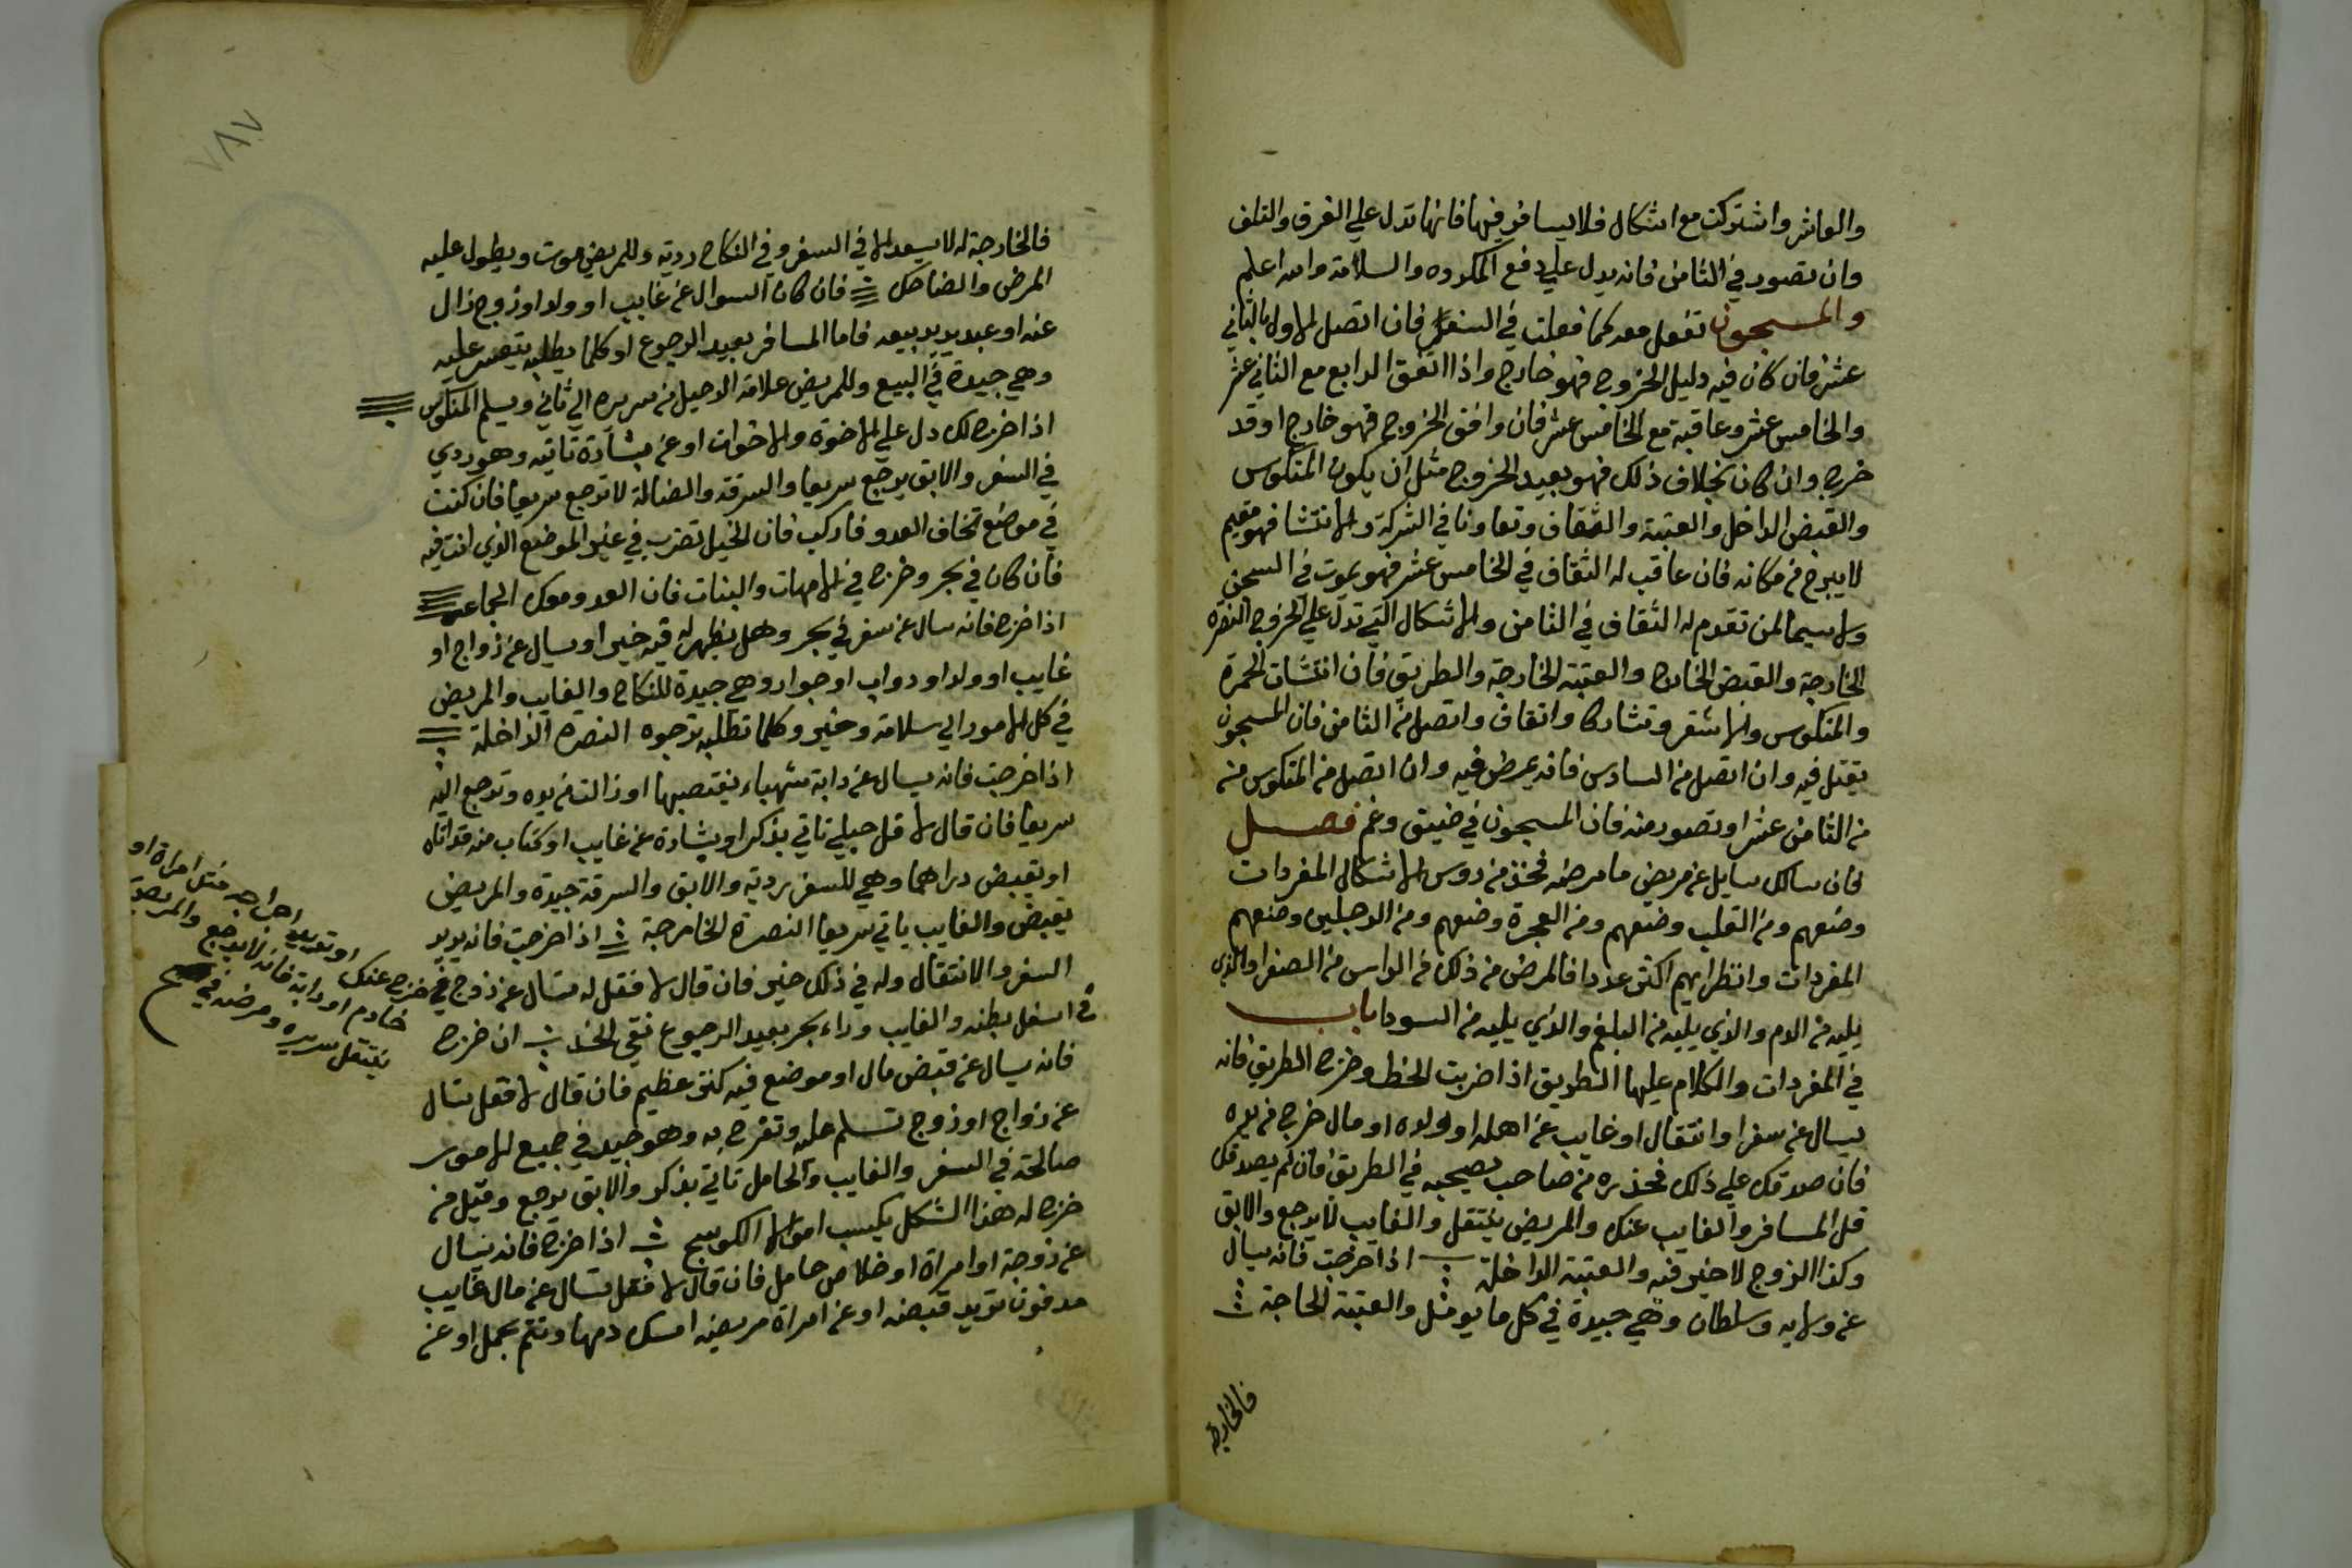 والعاشر واشتركت مع اشكال فلا يسافر فيها فانها تدل علي الغرق والتلف
وان تصور في الثامن فانه يدل علي دفع المكروه والسلامة والله اعلم
والمسجون تفعل معه كما فعلت في السفر فان اتصل الاول بالثاني
عشر فان كان فيه دليل الخروج فهو خارج واذا اتفق الرابع مع الثاني عشر
والخامس عشر وعاقبة مع الخامس عشر فان وافق الخروج فهو خارج او قد
خرج وان كان بخلاف ذلك فهو بعيد الخروج مثل ان يكون المنكوس
والقبض الداخل والعتبة والثقاف وتعاونا في الشركة والانتشا فهو مقيم
لا يبرح من مكانه فان عاقب له الثقاف في الخامس عشر فهو يموت في السجن
ولا سيما لمن تقدم له الثقاف في الثامن والاشكال التي تدل علي الخروج النصره
الخارجة والقبض الخارج والعتبة الخارجة والطريق فان انتشات الحمرة
والمنكوس والاشقر وتشاركا واتفاق واتصل من الثامن فان المسجون
يقتل فيه وان اتصل من السادس فانه يمرض فيه وان اتصل من المنكوس منه
من الثامن عشر او تصور منه فان المسجون في ضيق وغم فصل
فان سالك سايل عن مريض ما مرضه فخذ من روس الاشكال المفردات
وضعهم ومن القلب وضعهم ومن العجزة وضعهم ومن الرجلين وضعهم
المفردات وانظر ايهم اكثر عددا فالمرض من ذلك فمن الراس من الصفرا والذي
يليه من الدم والذي يليه من البلغم والذي يليه من السودا باب
في المفردات والكلام عليها الطريق اذا ضربت الخط وخرج الطريق فانه
يسال عن سفر او انتقال او غايب عن اهله او لولده او مال خرج من يده
فان صدقك علي ذلك فحذره من صاحب يصحبه في الطريق فان لم يصدقك
قل المسافر والغايب عنك والمريض ينتقل والغايب لا يرجع والابق
وكذا الزوج لا خير فيه والعتبة الداخلة اذا خرجت فانه يسال
عن ولايه وسلطان وهي جيدة في كل ما يومل والعتبة الخارجة
فالخارجة
٧٨٧
فالخارجة له لا يسعد الا في السفر وفي النكاح ردية وللمريض موت ويطول عليه
المرض والضاحك فان كان السوال عن غايب او ولد او زوج زال
عنه او عبد يريد بيعه فاما المسافر بعيد الرجوع او كلما يطلبه يتعسر عليه
وهي جيدة في البيع وللمريض علامة الرحيل من سريره الي ثاني ويسلم المنكوس
اذا خرج لك دل علي الاخوة والاخوات او عن بشارة تاتيه وهو ردي
في السفر والابق يرجع سريعا والسرقة والضالة لا ترجع سريعا فان كنت
في موضع تخاف العدو فاركب فان الخيل تضرب في غير الموضع الذي انت فيه
فان كان في بحر وخرج في الامهات والبنات فان العدو معك الجماعه
اذا خرج فانه سال عن سفر في بحر وهل يظهر له فيه خير او يسال عن زواج او
غايب او ولد او دواب او جوار وهي جيدة للنكاح والغايب والمريض
في كل الامور الي سلامة وخير وكلما تطلبه ترجوه النصره الداخلة
اذا خرجت فانه يسال عن دابة شهباء يغتصبها او زالت من يده وترجع اليه
سريعا فان قال لا قل حبلي تاتي بذكر او بشارة عن غايب او كتاب منه قد اتاه
او يقبض دراهما وهي للسفر ردية والابق والسرقة جيدة والمريض
يقبض والغايب ياتي سريعا النصرة الخارجة اذا خرجت فانه يريد
السفر والانتقال وله في ذلك خير فان قال لا فقل له تسال عن زوج في خرج عنك
في اسفل بطنه والغايب وراء بحر بعيد الرجوع نقي الخد ان خرج
فانه يسال عن قبض مال او موضع فيه كنز عظيم فان قال لا فقل تسال
عن زواج او زوج تسلم عليه وتفرح به وهو جيد في جميع الامور
صالحة في السفر والغايب والحامل تاتي بذكر والابق يرجع وقيل من
خرج له هذا الشكل يكسب اموالا الكوسج اذا خرج فانه يسال
عن زوجة او امراة او خلاص حامل فان قال لا فقل تسال عن مال غايب
مدفون تريد قبضه او عن امراة مريضه امسك دمها وتتم بحمل او عن
او تريد اخراجه مثل امراة او
خادم او دابة فانه لا يرجع والمريض
ينتقل سريره ومرضه في